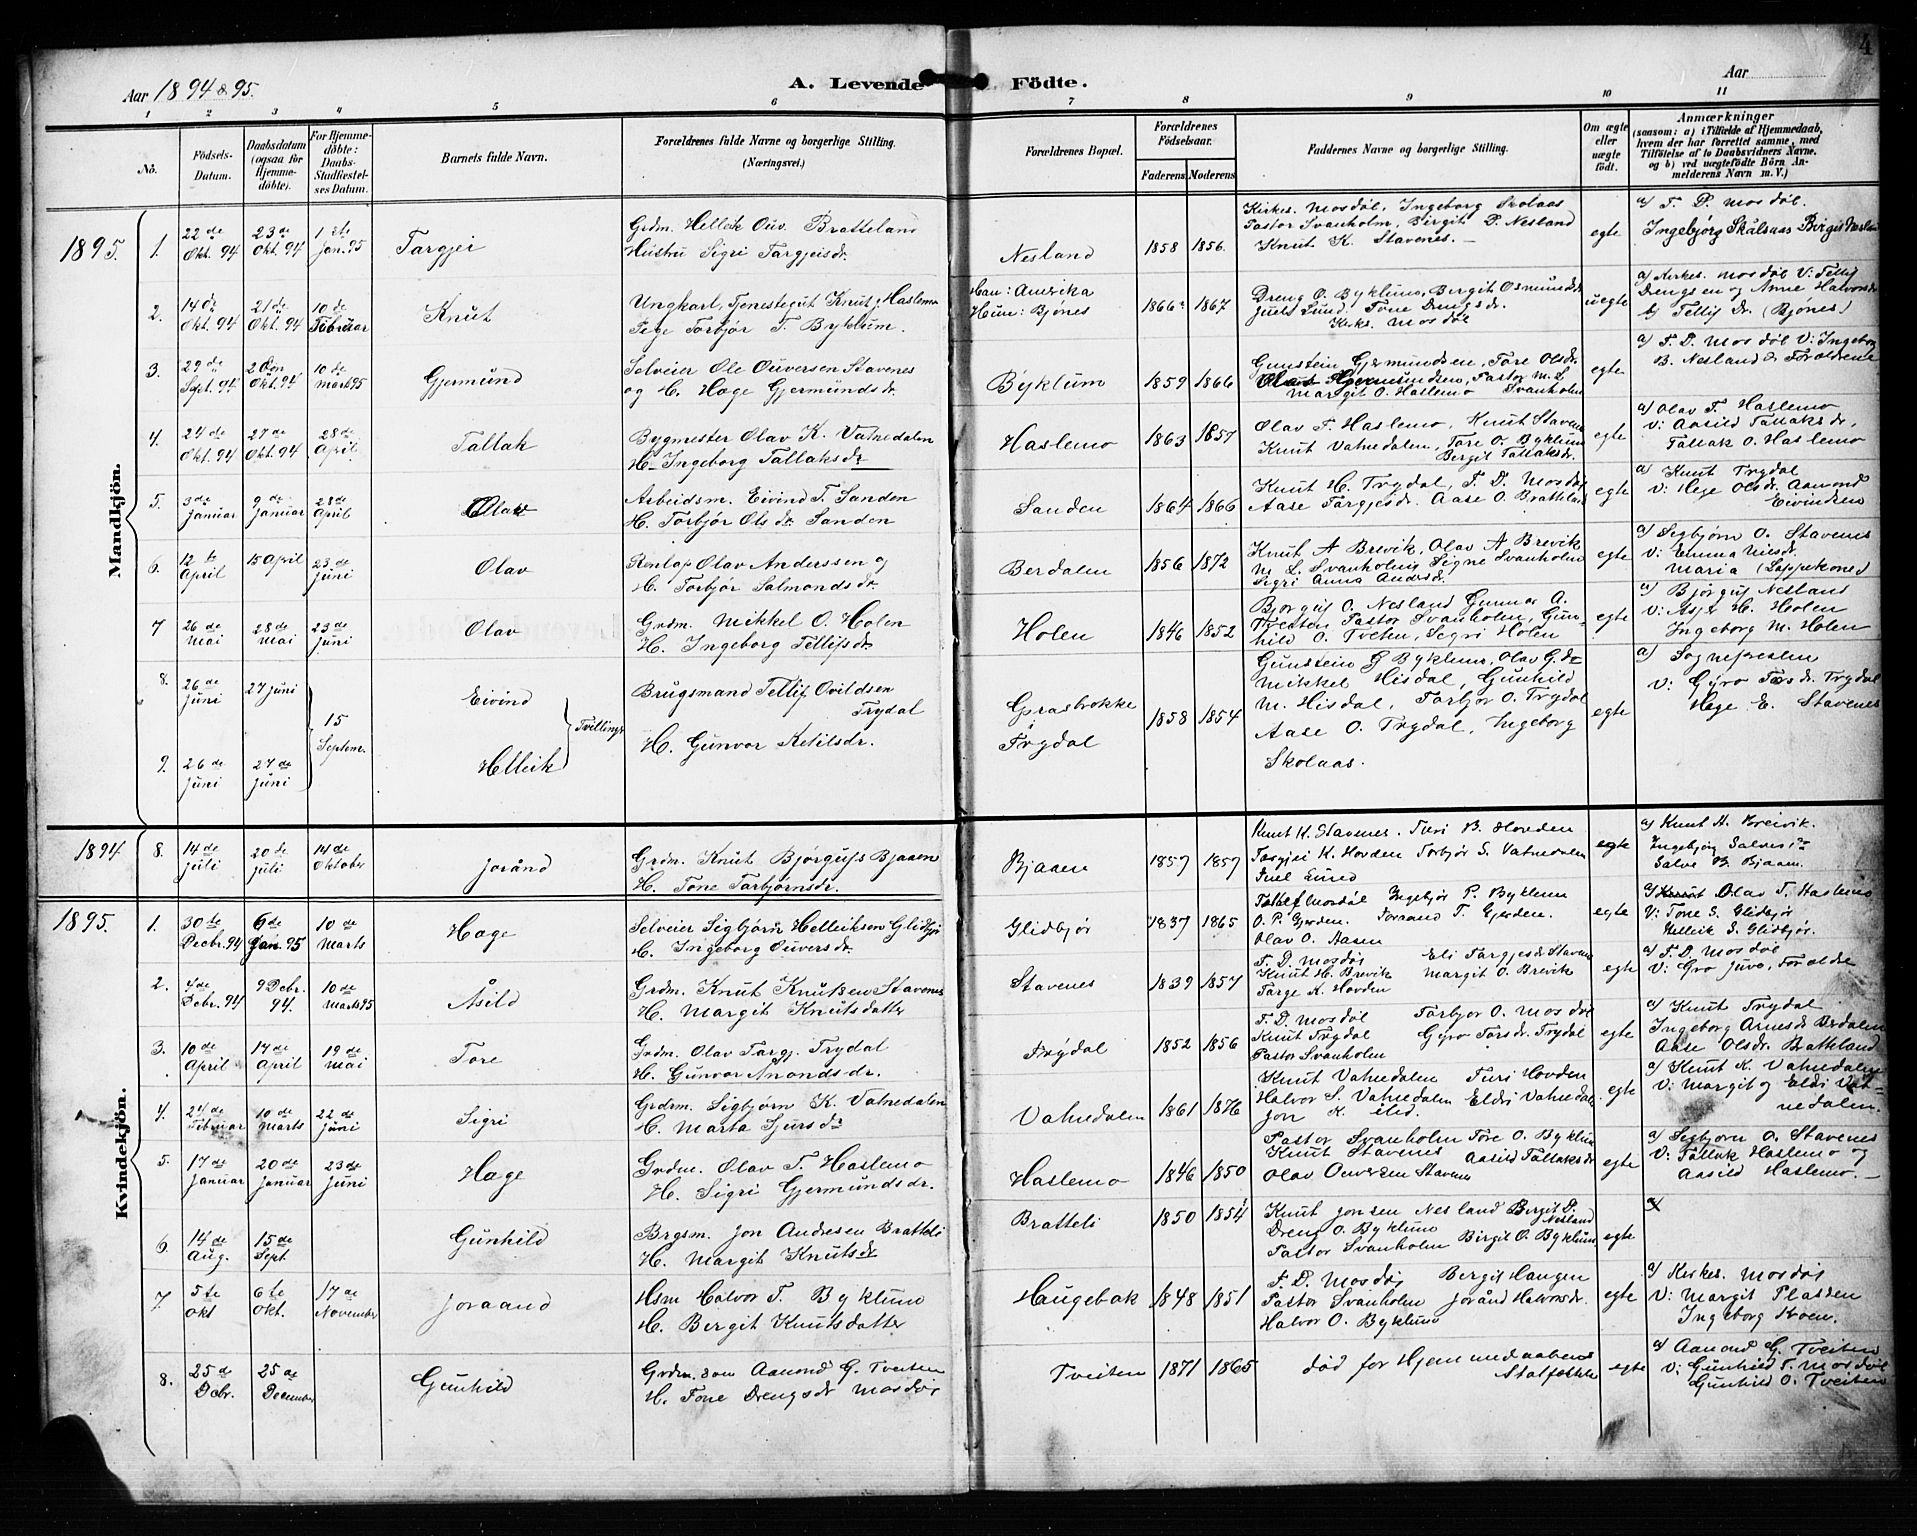 4
Aar 1894 & 95.
A. Levende Födte.
Aar
1 2 3 4 5 6 7 8 9 10 11
No.
Födsels-Datum.
Daabsdatum (ogsaa for Hjemmedöbte).
For Hjemmedöbte: Daabs-Stadfæstelses Datum.
Barnets fulde Navn.
Forældrenes fulde Navne og borgerlige Stilling. (Næringsvei.)
Forældrenes Bopæl.
Forældrenes Födselsaar.
Faderens Moderens
Faddernes Navne og borgerlige Stilling.
Om ægte eller uægte födt.
Anmærkninger
(saasom: a) i Tilfælde af Hjemmedaab, hvem der har forrettet samme, med Tilföielse af to Daabsvidners Navne. og b) ved uægtefödte Börn Anmelderens Navn m. V.)
Mandkjön.
1895. 1. 22de Okt. 94 23de Okt. 94 1ste Jan. 95 Targjei
Grdm. Helleik Ouv. Bratteland
Hustru Sigri Targjeisdr.
Nesland 1858 1856
Kirkes. Mosdöl, Ingeborg Skolaas
Pastor Svanholm, Birgit P. Nesland
Knut K. Stavenes.
egte
a) T. D. Mosdöl.
Ingebjørg Skålsaas Birgit Nesland
2. 14de Okt. 94 21de Okt. 94 10de Februar Knut
Ungkarl, Tjenestegut Knut J. Haslemo
Pige Torbjør T. Byklum.
Han: Amerika
Hun: Bjønes 1866 1867
Dreng O. Byklum, Bergit Osmundsdr
Juel Lund. Tone Drengsdr.
Kirks. Mosdöl
uegte
a) Kirkes. Mosdöl V: Tellif
Drengsen og Anne Halvorsdr
b) Tellif Dr. (Bjønes)
3. 29de Sept. 94 Okt. 94 10de Marts 95 Gjermund
Selveier Ole Ouversen Stavenes
og H. Hage Gjermundsdr.
Byklum 1859 1866
Gunstein Gjermundsen, Tore Olsdr.
Gjermundsen, Pastor M. L.
Margit O. Haslemo Svanholm
egte
a) T. D. Mosdöl V: Ingeborg
B. Nesland & Forældrene
4. 24de Okt. 94 27de Okt. 94 28de April Tallak
Bygmester Olav K. Vatnedalen
H. Ingeborg Tallaksdr.
Haslemo 1863 1857
Olav T. Haslemo, Knut Stavenes
Knut Vatnedalen, Tore O. Byklum
Bergit Tallaksdr.
egte
a) Olav T. Haslemo
V: Aasild Tallaksdr
Tallak O. Haslemo
5. 3de Januar 9de Januar 28de April Olav
Arbeidsm. Eivind T. Sanden
H. Torbjør Olsdr. Sanden
Sanden 1864 1866
Knut H. Trydal, T. D. Mosdöl
Aase Targjesdr. Aase O. Bratteland
egte
a) Knut Trydal
V: Hege Olsdr. Aamond
Eivindsen
6. 12te April 15 April 23de Juni Olav
Olav Anderssen og
H. Torbjör Salmondsdr.
Berdalen 1856 1872
Knut A Brevik, Olav A Brevik
M. L. Svanholm, Signe Svanholm
Sigri Anna Andersdr.
egte
a) Segbjørn O. Stavenes
V: Emma
Maria (Lappekone)
7 26de Mai 28de Mai 23de Juni Olav
Grdm. Mikkel O. Holen
H. Ingeborg Tellifsdr
Holen 1846 1852
Bjorguf O. Nesland Gunnar A.
Tveiten Pastor Svanholm, Gun-
hild O. Tveiten, Segri Holen
egte
a) Bjørguf Nesland
V: Asje H. Holen
Ingeborg M. Holen
8. 26de Juni 27 Juni 15 Septem. Eivind
Tvillinger
Brugsmand Tellif Ovildsen
Trydal
H. Gunvor Ketilsdr.
Grasbrokke
i
Trydal 1858 1854
Gunstein G Byklum, Olav G. de
Mikkel Hisdal, Gunhild
M. Hisdal, Torbjør O. Trydal
Aase O. Trydal, Ingeborg
Skolaas.
egte
a) Sognepresten
V: Gyro Torsdr. Trydal
Hege E. Stavenes
9. 26de Juni 27de Juni Helleik
Kvindekjön.
1894 8. 14de Juli 20de Juli 14de Oktober Joränd
Grdm. Knut Bjørgufs Bjaaen
H. Tone Torbjørnsdr.
Bjaaen 1857 1857
Knut K. Stavenes. Turi B. Hovden
Targjei K. Hovden Torbjør S. Vatnedalen
Juel Lund
egte
a) Knut A. Breivik.
Ingebjörg Salves
Salve B. Bjaaen.
1895. 1. 30te Decbr. 94 6de Jan. 95 10de Marts Hage
Selveier Sigbjørn Helleiksen Glidbjør
H. Ingeborg Ouversdr
Glidbjør 1837 1865
Mosdöl Ingebjør P. Byklum
O. P. Gjerden. Joraand T. Gjerden.
Olav O. Aasen
egte
a) Olav T. Haslemo
V: Tone S. Glidbjør
Helleik S. Glidbjør.
2. 4de Decbr. 94 9 Decbr. 94. 10de Marts 95 Åsild
Grdm. Knut Knutsen Stavenes
H. Margit Knutsdatter
Stavenes 1839 1857
T. D. Mosdöl Eli Targjesdr Stavenes
Knut H. Brevik Margit O. Brevik
Targe K. Hovden
egte
a) T. D. Mosdöl
V: Gro Juvo, Foraldre
3. 10de April 14de April 19de Mai Tore
Grdm. Olav Targj. Trydal
H. Gunvor Anondsdr.
Trydal 1852 1856
T. D. Mosdöl Torbjør O. Mosdöl
Knut Trydal Gyro Torsdr. Trydal
Pastor Svanholm
egte
a) Knut Trydal
Ingeborg Arnesdr Berdalen
Aase Olsdr. Bratteland
4. 24de Februar 10de Marts 22de Juni Sigri
Grdrm. Sigbjørn K. Vatnedalen
H. Marta Sjursdr
Vatnedalen 1861 1876
Knut Vatnedalen Turi Hovden
Halvor S. Vatnedalen Eldri Vatnedal
Jon K.
egte
a) Knut K. Vatnedalen
V: Margit og Eldri Vat-
nedalen.
5. 17de Januar 20de Januar 23de Juni Hage
Grdm. Olav T. Haslemo
H. Sigri Gjermundsdr.
Haslemo 1846 1850
Pastor Svanholm Tore O. Byklum
Knut Stavenes Aasild Tallaksdr
Olav Ouversen Stavenes
egte
a) Segbjørn O. Stavenes
V: Tallak Haslemo og
Aasild Haslemo.
6. 14de Aug. 15de Sept Gunhild
Brgsm. Jon Andresen Bratteli
H. Margit Knutsdr
Bratteli 1850 1854
Knut Jonsen Nesland Birgit D.
Nesland
Dreng O. Byklum
Pastor Svanholm Birgit O. Byklum
egte
a)
7. 5te Okt 6te Okt. 17de November Joraand
Hsm Halvor T. Byklum
H. Bergit Knutsdatter
Haugebak 1848 1851
T. D. Mosdöl Bergit Haugen
Pastor Svanholm Joränd Halvorsdr.
Halvor O. Byklum
egte
a) Kirkes. Mosdöl
V: Margit Plassen
Ingeborg Kroen.
8. 25de Decbr. 25de December Gunhild
Grdm. søn Aamond G. Tveiten
H. Tone Drengsdr Mosdöl
Tveiten 1871 1865
död for Hjemmedaabens
Stadfæstelse
egte
a) Aamond G. Tveiten
V: Gunhild T. Mosdöl
Gunhild O. Tveiten